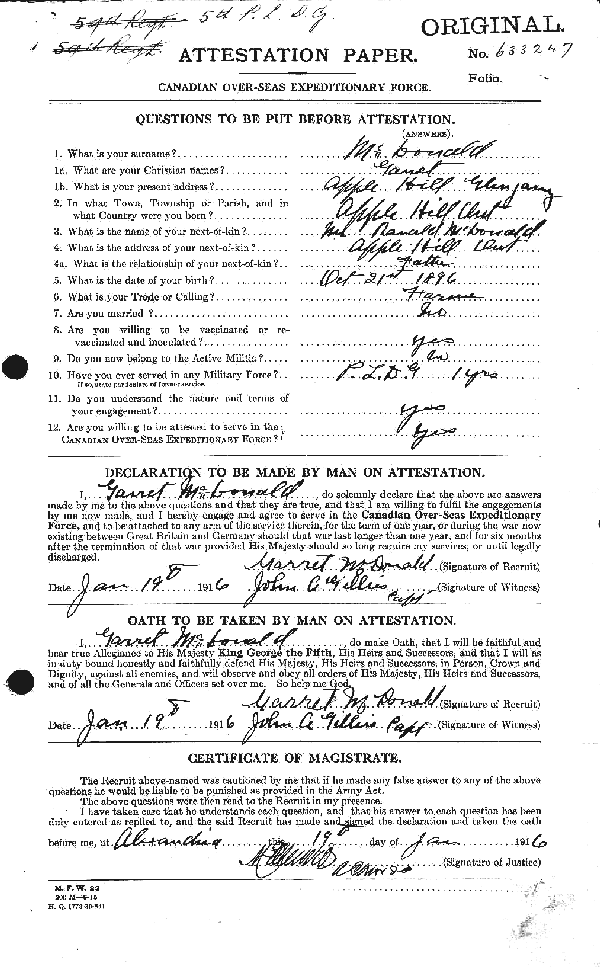 59th Regt 5d P. L. D. G
59th Regt.
ORIGINAL.
ATTESTATION PAPER.
No. 633247
Folio.
CANADIAN OVER-SEAS EXPEDITIONARY FORCE.
QUESTIONS TO BE PUT BEFORE ATTESTATION.
(ANSWERS).
1. What is your surname? McDonald
1a. What are your Christian names? Garret
1b. What is your present address? Apple Hill Glengarry
2. In what Town, Township or Parish, and in
what Country were you born? Apple Hill Ont
3. What is the name of your next-of-kin? Ranald McDonald
4. What is the address of your next-of-kin? Apple Hill Ont
4a. What is the relationship of your next-of-kin? Father
5. What is the date of your birth? Oct 21st 1896
6. What is your Trade or Calling? Farmer
7. Are you married? No
8. Are you willing to be vaccinated or re-
vaccinated and inoculated? yes
9. Do you now belong to the Active Militia? No
10. Have you ever served in any Military Force? P. L. D. G 1 yrs
If so, state particulars of former service.
11. Do you understand the nature and terms of
your engagement? yes
12. Are you willing to be attested to serve in the
CANADIAN OVER-SEAS EXPEDITIONARY FORCE? Yes
DECLARATION TO BE MADE BY MAN ON ATTESTATION.
I, Garret McDonald, do solemnly declare that the above are answers
made by me to the above questions and that they are true, and that I am willing to fulfil the engagements
by me now made, and I hereby engage and agree to serve in the Canadian Over-Seas Expeditionary
Force, and to be attached to any arm of the service therein, for the term of one year, or during the war now
existing between Great Britain and Germany should that war last longer than one year, and for six months
after the termination of that war provided His Majesty should so long require my services, or until legally
discharged.
Garret McDonald (Signature of Recruit)
Date Jan 19th 1916 John A Gillis Capt (Signature of Witness)
OATH TO BE TAKEN BY MAN ON ATTESTATION.
I, Garret McDonald, do make Oath, that I will be faithful and
bear true Allegiance to His Majesty King George the Fifth, His Heirs and Successors, and that I will as
in duty bound honestly and faithfully defend His Majesty, His Heirs and Successors, in Person, Crown and
Dignity, against all enemies, and will observe and obey all orders of His Majesty, His Heirs and Successors,
and of all the Generals and Officers set over me. So help me God.
Garret McDonald (Signature of Recruit)
Date Jan 19th 1916 John A Gillis Capt (Signature of Witness)
CERTIFICATE OF MAGISTRATE.
The Recruit above-named was cautioned by me that if he made any false answer to any of the above
questions he would be liable to be punished as provided in the Army Act.
The above questions were then read to the Recruit in my presence.
I have taken care that he understands each question, and that his answer to each question has been
duly entered as replied to, and the said Recruit has made and signed the declaration and taken the oath
before me, at Alexandria this 19th day of Jan 1916
(Signature of Justice)
M. F. W. 23
H. Q. 1772-39-241